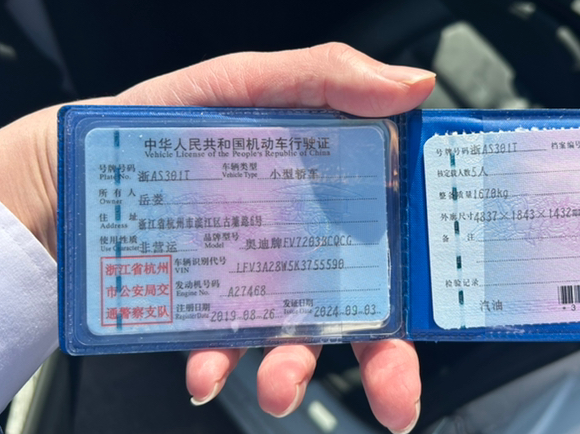 中华人民共和国机动车行驶证
Vehicle License of the People's Republic of China
号牌号码 浙AS301T 车辆类型 小型轿车
Plate No. Vehicle Type
所有人 岳娄
Owner
住址 浙江省杭州市滨江区古塘路4号
Address
使用性质 非营运 品牌型号 奥迪牌FV7203BCQCG
Use Character Model
浙江省杭州
市公安局交
通警察支队
车辆识别代号 LFV3A28W5K3755590
VIN
发动机号码 A27468
Engine No.
注册日期 2019-08-26 发证日期 2024-09-03
Register Date Issue Date
号牌号码 浙AS301T 档案编号
核定载人数 5人
整备质量 1670kg
外廓尺寸 4837×1843×1432
备注
检验记录
汽油
*3